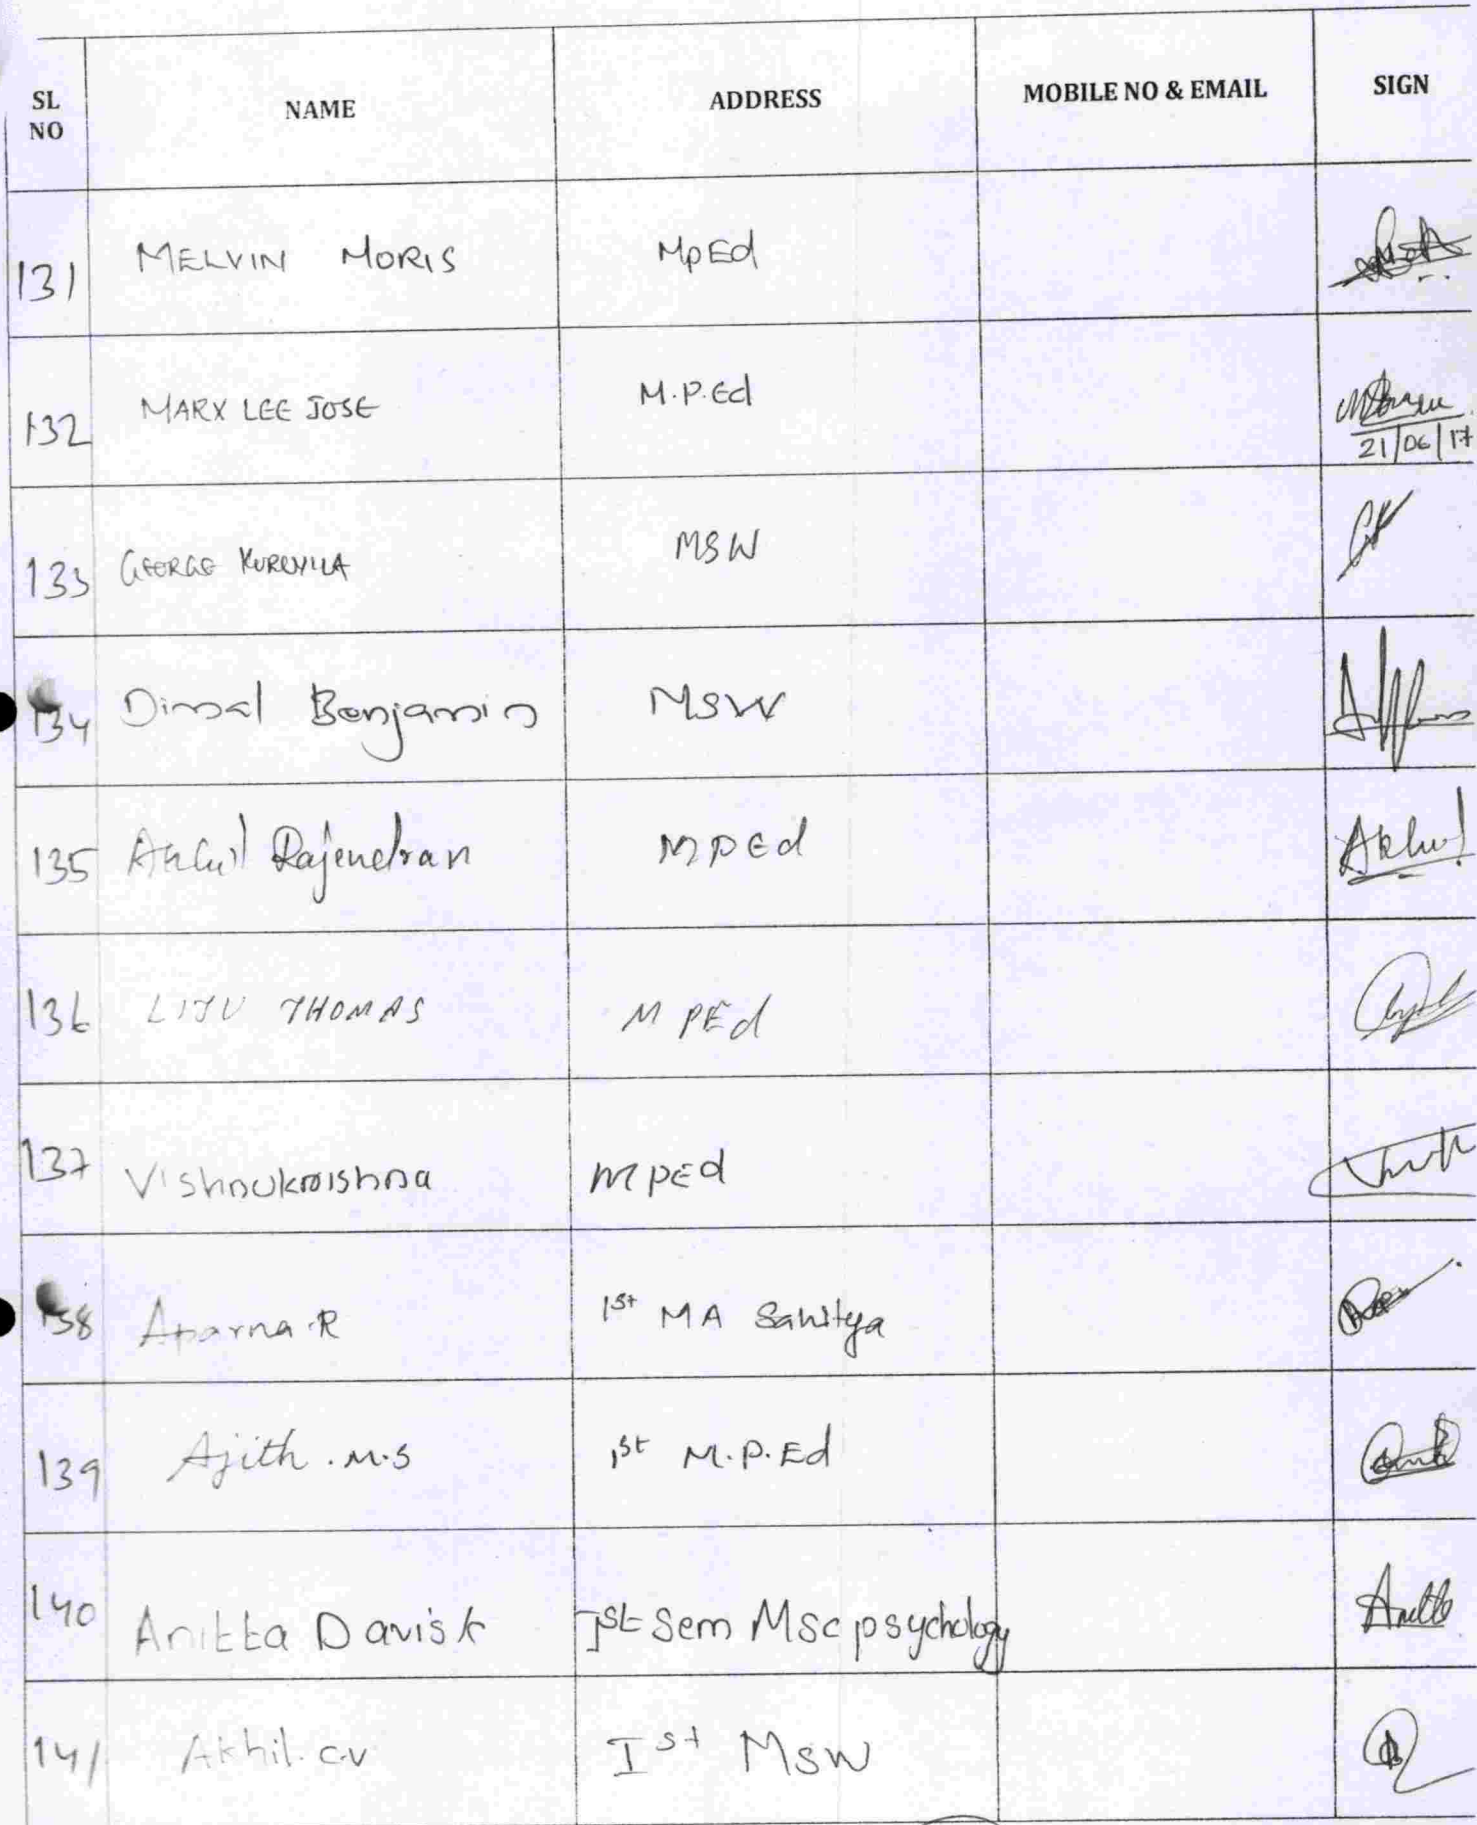 SL NO NAME ADDRESS MOBILE NO & EMAIL SIGN
131 MELVIN MORIS MpEd
132 MARX LEE JOSE M.P.Ed
21/06/17
133 GEORGE KURUVILA MSW
134 Dimal Benjamin MSW
135 Akhil Rajendran MPEd Akhil
136 LIJU THOMAS M PEd
137 Vishnukrishna MPEd
138 Aparna R 1st MA Sahitya
139 Ajith . M.S 1st M.P.Ed
140 Anitta Davis k Ist Sem Msc psychology
141 Akhil. C.V Ist MSW